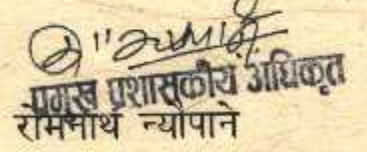 प्रमुख प्रशासकीय अधिकृत
रोमनाथ न्यौपाने